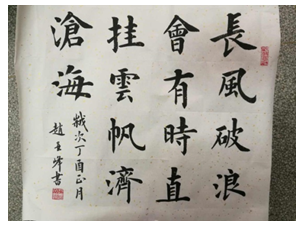 長風破浪
會有時直
挂雲帆濟
滄海
歲次丁酉正月
趙玉峰書